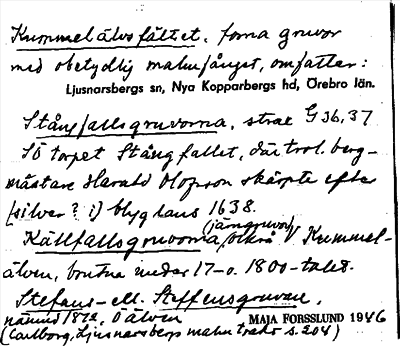 Kummelälvsfältet, forna gruvor
med obetydlig malmfångst, omfattar:
Ljusnarsbergs sn, Nya Kopparbergs hd, Örebro län.
Stångfallsgruvorna, strax G 36, 37
SÖ torpet Stångfallet, där trol. berg-
mästare Harald Olofsson skärpte efter
(silver? i) blyglans 1638.
(järngruvor)
Källfallsgruvorna, också V Kummel-
älven, brutna under 17- o. 1800-talet.
Stefans- ell. Steffensgruvan,
nämns 1872, Ö älven MAJA FORSSLUND 1946
(Carlborg, Ljusnarsbergs malmtrakt s. 204)